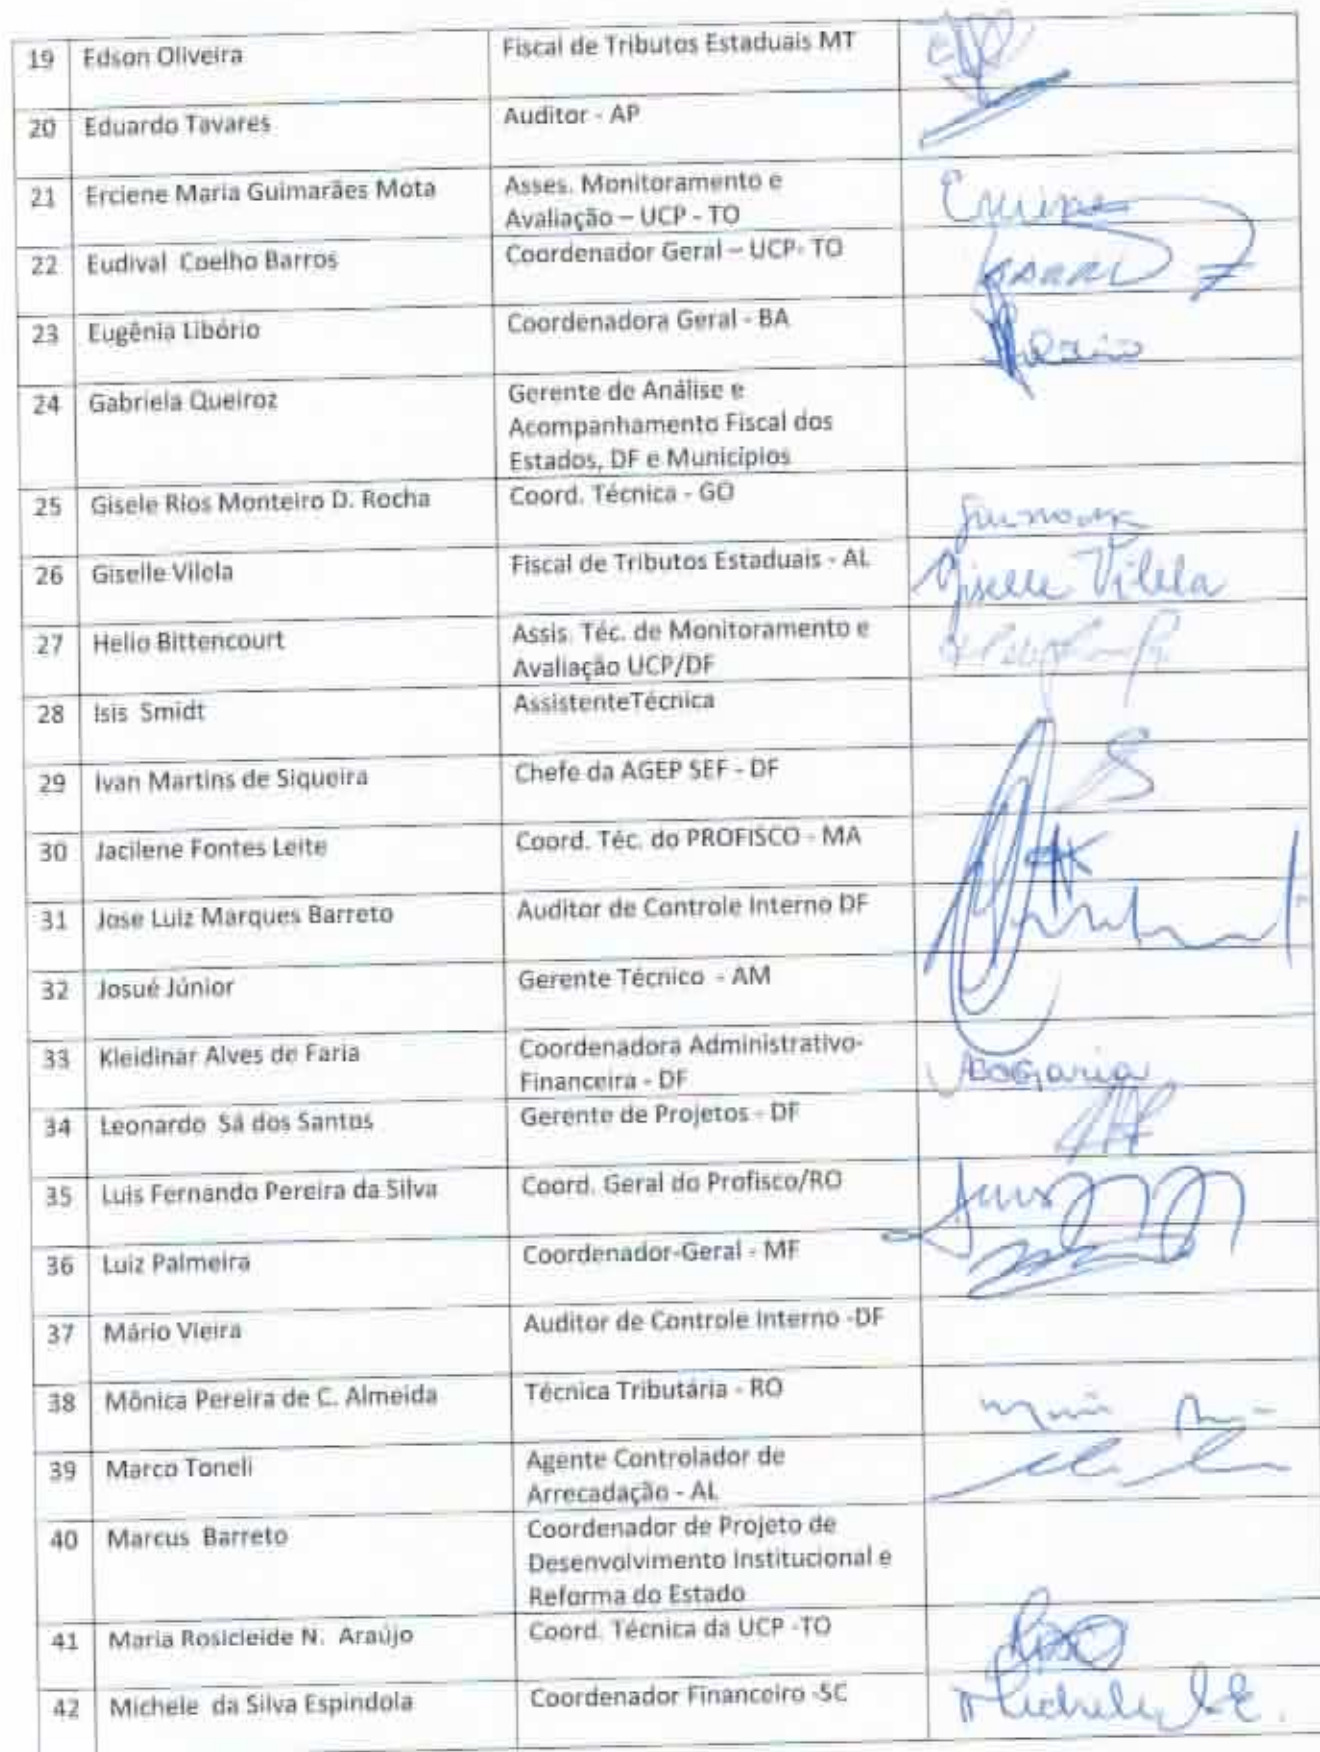 19 Edson Oliveira Fiscal de Tributos Estaduais MT
20 Eduardo Tavares Auditor - AP
21 Erciene Maria Guimarães Mota Asses. Monitoramento e
Avaliação – UCP - TO
22 Eudival Coelho Barros Coordenador Geral – UCP- TO
23 Eugênia Libório Coordenadora Geral - BA
24 Gabriela Queiroz Gerente de Análise e
Acompanhamento Fiscal dos
Estados, DF e Municípios
25 Gisele Rios Monteiro D. Rocha Coord. Técnica - GO
26 Giselle Vilela Fiscal de Tributos Estaduais - AL Giselle Vilela
27 Helio Bittencourt Assis. Téc. de Monitoramento e
Avaliação UCP/DF
28 Isis Smidt AssistenteTécnica
29 Ivan Martins de Siqueira Chefe da AGEP SEF - DF
30 Jacilene Fontes Leite Coord. Téc. do PROFISCO - MA
31 Jose Luiz Marques Barreto Auditor de Controle Interno DF
32 Josué Júnior Gerente Técnico - AM
33 Kleidinar Alves de Faria Coordenadora Administrativo-
Financeira - DF
34 Leonardo Sá dos Santos Gerente de Projetos - DF
35 Luis Fernando Pereira da Silva Coord. Geral do Profisco/RO
36 Luiz Palmeira Coordenador-Geral - MF
37 Mário Vieira Auditor de Controle Interno -DF
38 Mônica Pereira de C. Almeida Técnica Tributária - RO
39 Marco Toneli Agente Controlador de
Arrecadação - AL
40 Marcus Barreto Coordenador de Projeto de
Desenvolvimento Institucional e
Reforma do Estado
41 Maria Rosicleide N. Araújo Coord. Técnica da UCP -TO
42 Michele da Silva Espindola Coordenador Financeiro -SC